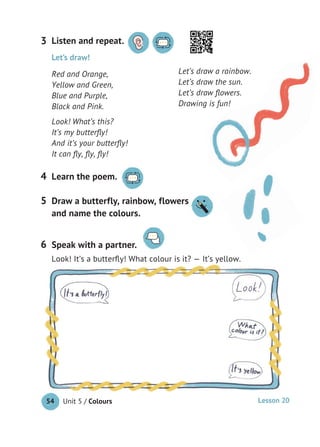 3 Listen and repeat.
Let's draw!
Red and Orange,
Yellow and Green,
Blue and Purple,
Black and Pink.
Look! What's this?
It's my butterfly!
And it's your butterfly!
It can fly, fly, fly!
Let's draw a rainbow.
Let's draw the sun.
Let's draw flowers.
Drawing is fun!
4 Learn the poem.
5 Draw a butterfly, rainbow, flowers
and name the colours.
6 Speak with a partner.
Look! It's a butterfly! What colour is it? — It's yellow.
It's a butterfly!
Look!
What
colour is it?
It's yellow
54 Unit 5 / Colours
Lesson 20